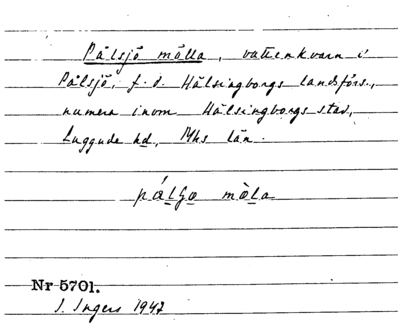 Pålsjö mölla, vattenkvarn i
Pålsjö, f.d. Hälsingborgs landsförs.,
numera inom Hälsingborgs stad,
Luggude hd, Mhs län.
mòla
Nr 5701.
I. Ingers 1947